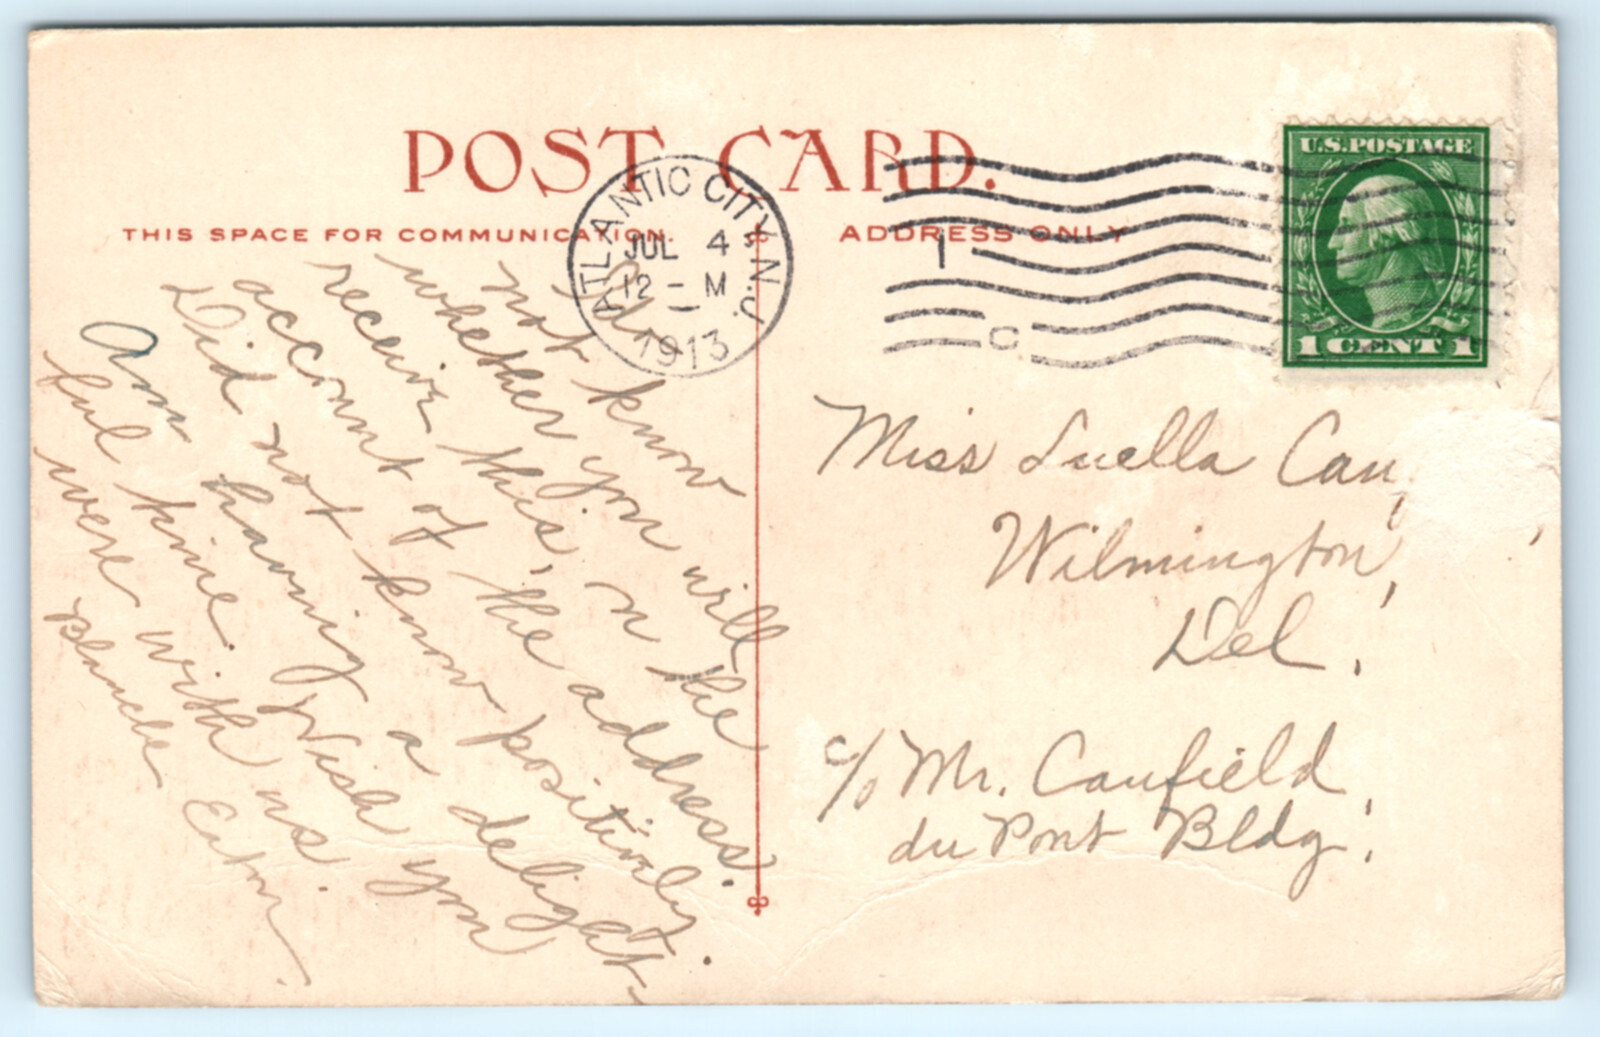 POST CARD.
THIS SPACE FOR COMMUNICATION.
ADDRESS ONLY
ATLANTIC CITY, N.J.
JUL 4
12 - M
1913
1
C
U.S. POSTAGE
1 CENT 1
Do
not know
whether you will
receive this, n the
account of the address.
Did not know positively.
Am having a delight
ful time. Wish you
were with us.
Blanche Eaton
Miss Luella Cau
Wilmington,
Del.
c/o Mr. Caufield,
du Pont Bldg.